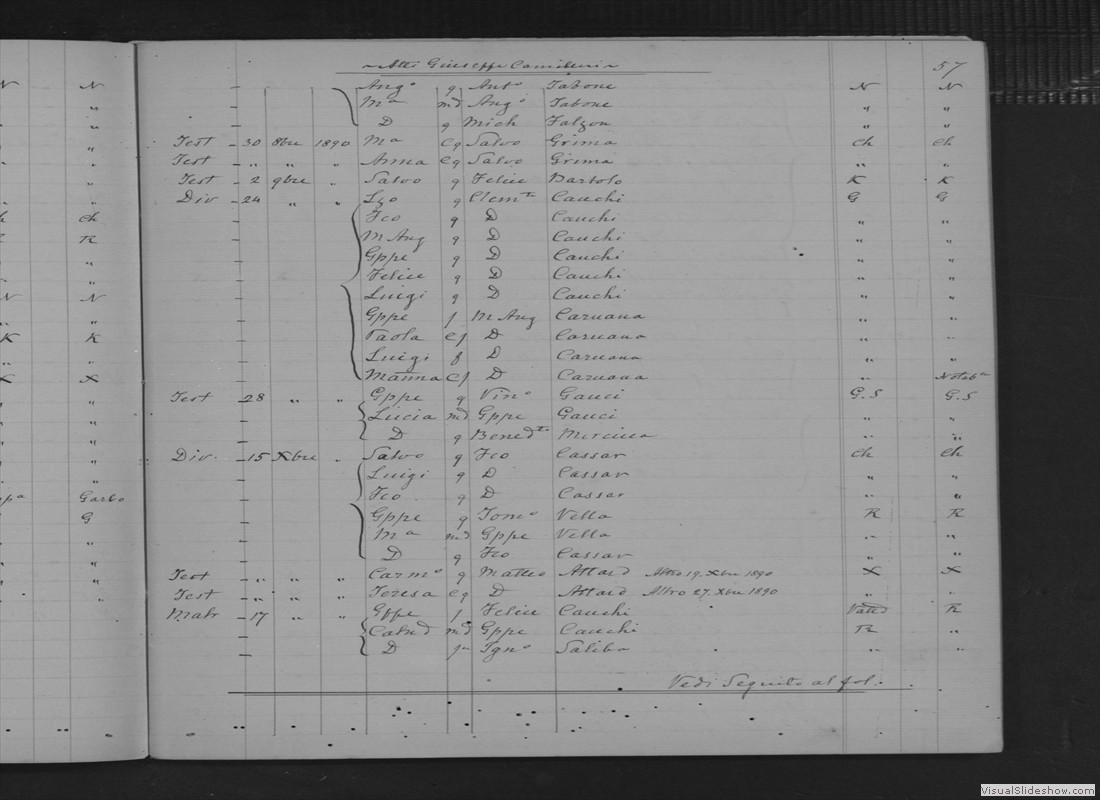 Atti Giuseppe Camilleri
57
Angº g Antº Tabone N N
Mª md Angº Tabone " "
D g Mich Falzon " "
Test - 30 8bre 1890 Mª cg Salvo Grima Ch Ch
Test - " " " Anna cg Salvo Grima " "
Test - 2 9bre " Salvo g Felice Bartolo K K
Div - 24 " " Lzo g Clemte Cauchi G G
Fco g D Cauchi " "
M Ang g D Cauchi " "
Gppe g D Cauchi " "
Felice g D Cauchi " "
Luigi g D Cauchi " "
Gppe f M Ang Caruana " "
Paola cf D Caruana " "
Luigi f D Caruana " "
Marina cf D Caruana " Notabª
Test - 28 " " Gppe g Vinº Gauci G.S G.S
Lucia md Gppe Gauci " "
D g Benedto Mercieca " "
Div. - 15 Xbre " Salvo g Fco Cassar Ch Ch
Luigi g D Cassar " "
Fco g D Cassar " "
Gppe g Tomº Vella R R
Mª md Gppe Vella " "
D g Fco Cassar " "
Test - " " " Carmº g Matteo Attard Altro 19. Xbre 1890 X X
Test - " " " Teresa cg D Attard Altro 27. Xbre 1890 " "
Matr - 17 " " Gppe f Felice Cauchi R
md Gppe Cauchi R "
D Ignº Saliba " "
Vedi Seguito al fol.
N N
Ch
R
N N
K K
X X
Garbo
G
VisualSlideshow.com